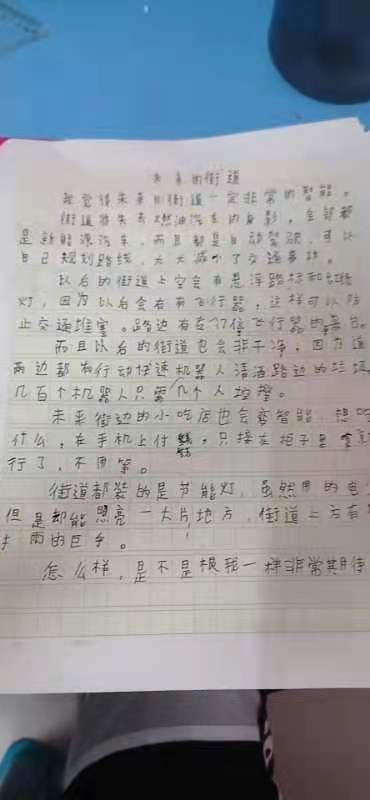 未来的街道
我觉得未来的街道一定非常的智能。
街道将失去燃油汽车的身影，全部都
是新能源汽车，而且都是自动驾驶，可以
自己规划路线，大大减小了交通事故。
以后的街道上空会有悬浮路标和红绿
灯，因为以后会有有飞行器，这样可以防
止交通堵塞。路边有专门停飞行器的平台。
而且以后的街道也会非干净，因为道
两边都有行动快速机器人清洁路边的垃圾
几百个机器人只需几个人控管。
未来街边的小吃店也会变智能，想吃
什么，在手机上付钱，只接在柜子里拿就
行了，不用等。
街道都装的是节能灯，虽然用的电
但是却能照亮一大片地方，街道上方有
雨的巨伞。
怎么样，是不是根我一样非常期待